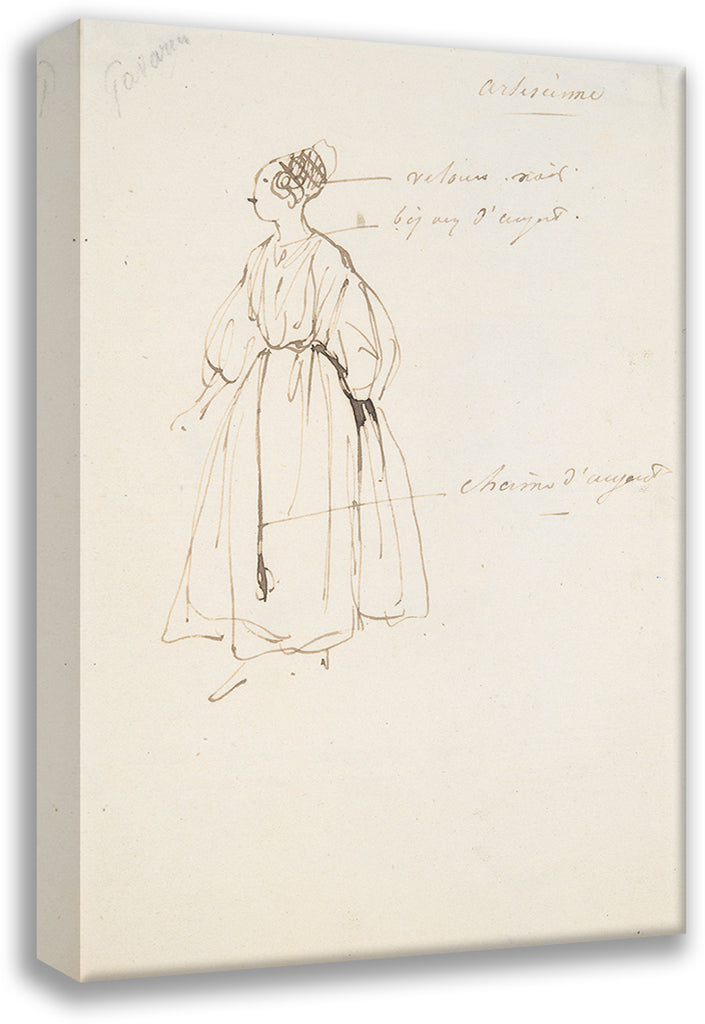 Gavarni
artésienne
velours noir.
bijoux d'argent.
chaine d'argent